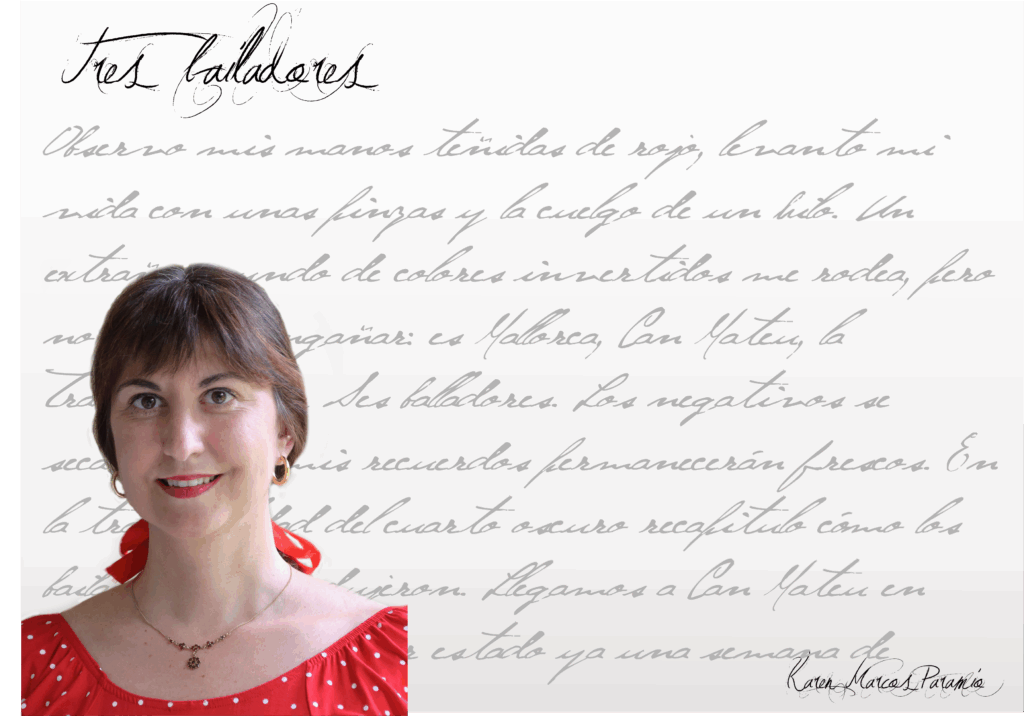 Tres bailadores
Observo mis manos teñidas de rojo, levanto mi
vida con unas pinzas y la cuelgo de un hilo. Un
extraño mundo de colores invertidos me rodea, pero
no engañar: es Mallorca, Can Mateu, la
Ses balladores. Los negativos se
mis recuerdos permanecerán frescos. En
la del cuarto oscuro recapitulo cómo los
Llegamos a Can Mateu en
estado ya una semana de
Karen Marcos Paramio